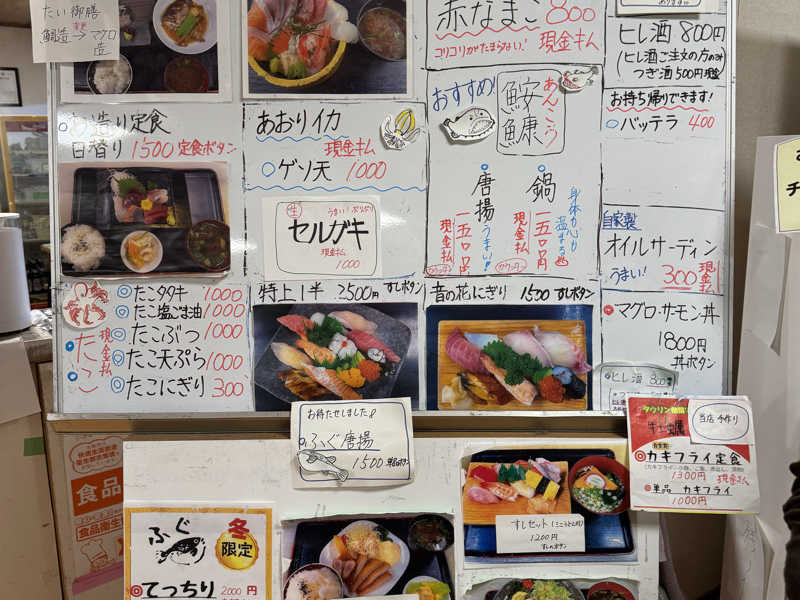 たい御膳
鯛造→マグロ
造
お造り定食
日替り 1500 定食ボタン
あおりイカ
現金キム
○ゲソ天 1000
生 うまい!ぷりぷり
セルガキ
現金キム
1000
赤なまこ 800
コリコリがたまらない! 現金キム
おすすめ!
鮟鱇
あんこう
唐揚
うまい!
一五〇〇円
現金キム
カウンター
鍋
一五〇〇円
現金キム
カウンター
身体の心も
温まる
ヒレ酒 800円
(ヒレ酒ご注文の方のみ
つぎ酒 500円 現金)
お持ち帰りできます!
○バッテラ 400
自家製
オイルサーディン
うまい! 300 現金キム
マグロ・サーモン丼
1800円
丼ボタン
ヒレ酒 800
たこ
現金キム
◎たこタタキ 1000
◎たこ塩ごま油 1000
◎たこぶつ 1000
◎たこ天ぷら 1000
◎たこにぎり 300
特上1半 2500円 すしボタン
音の花にぎり 1500 すしボタン
お待たせしました
ふぐ唐揚
1500 単品ボタン
食品
食品衛生
ふぐ
冬
限定
てっちり 2000円
すしセット
1200円
すしのボタン
当店手作り
カキフライ定食
1300円 現金キム
単品 カキフライ
1000円